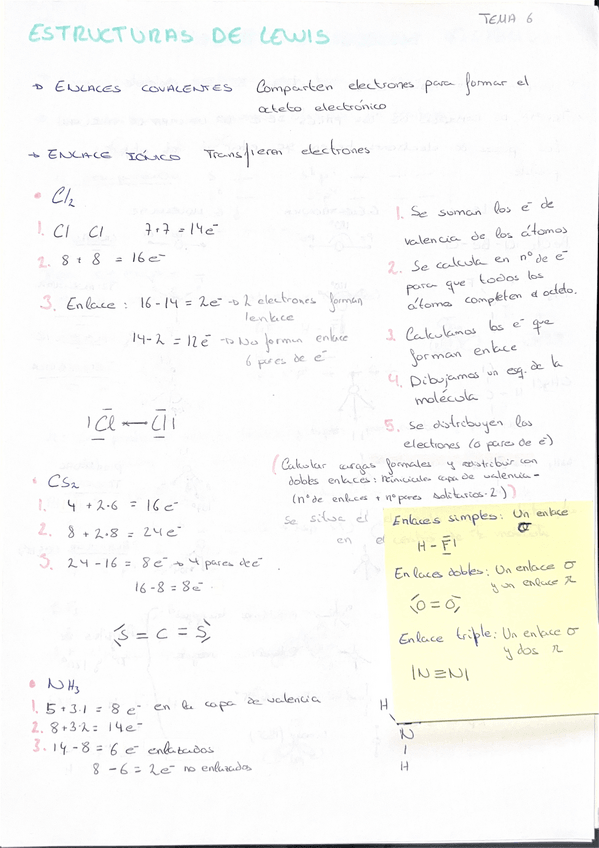 TEMA 6
ESTRUCTURAS DE LEWIS
→ ENLACES COVALENTES Comparten electrones para formar el
octeto electrónico
→ ENLACE IÓNICO Transfieren electrones
• Cl₂
1. Cl Cl 7+7 = 14e⁻
2. 8 + 8 = 16e⁻
3. Enlace : 16-14 = 2e⁻ → 2 electrones forman
1 enlace
14-2 = 12e⁻ → No forman enlace
6 pares de e⁻
|Cl — Cl|
1. Se suman los e⁻ de
valencia de los átomos
2. Se calcula en nº de e⁻
para que todos los
átomos completen el octeto.
3. Calculamos los e⁻ que
forman enlace
4. Dibujamos un esq. de la
molécula
5. Se distribuyen los
electrones (o pares de e⁻)
(Calcular cargas formales y distribuir con
dobles enlaces: capa de valencia -
(nº de enlaces + nº pares solitarios·2))
Se situa el
en el
• CS₂
1. 4 + 2·6 = 16e⁻
2. 8 + 2·8 = 24e⁻
3. 24-16 = 8e⁻ → 4 pares de e⁻
16-8 = 8e⁻
S = C = S
Enlaces simples: Un enlace
σ
H - F|
Enlaces dobles: Un enlace σ
y un enlace π
O = O
Enlace triple: Un enlace σ
y dos π
|N≡N|
• NH₃
1. 5+3·1 = 8 e⁻ en la capa de valencia
2. 8+3·2 = 14e⁻
3. 14-8 = 6 e⁻ enlazados
8-6 = 2e⁻ no enlazados
H
N
H